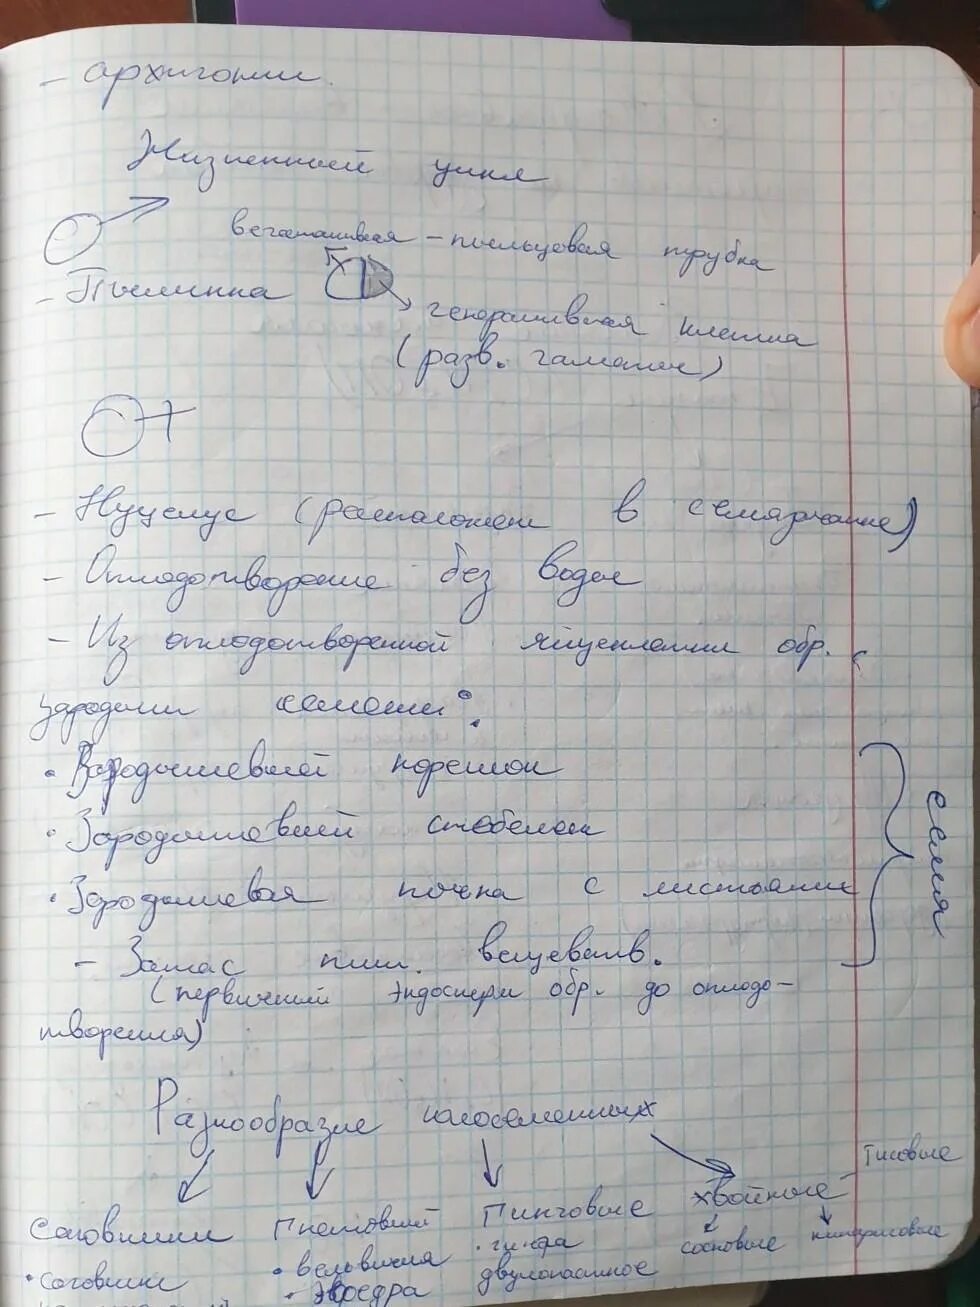 - архегонии.
Жизненный цикл
вегетативная - пыльцевая трубка
- Пылинка
генеративная клетка
(разв. гаметы)
- Нуцелус (расположен в семязачатке)
- Оплодотворение без воды
- Из оплодотворенной яйцеклетки обр.
зародыш семени:
• Зародышевый корешок
• Зародышевый стебелек
• Зародышевая почка с листьями
семя
- Запас пит. веществ.
(первичный эндосперм обр. до оплодо-
творения)
Разнообразие голосеменных
Тисовые
Саговники Гнетовый Гинговые хвойные
• саговник • вельвичия • гинкго сосновые кипарисовые
• эфедра двулопастное